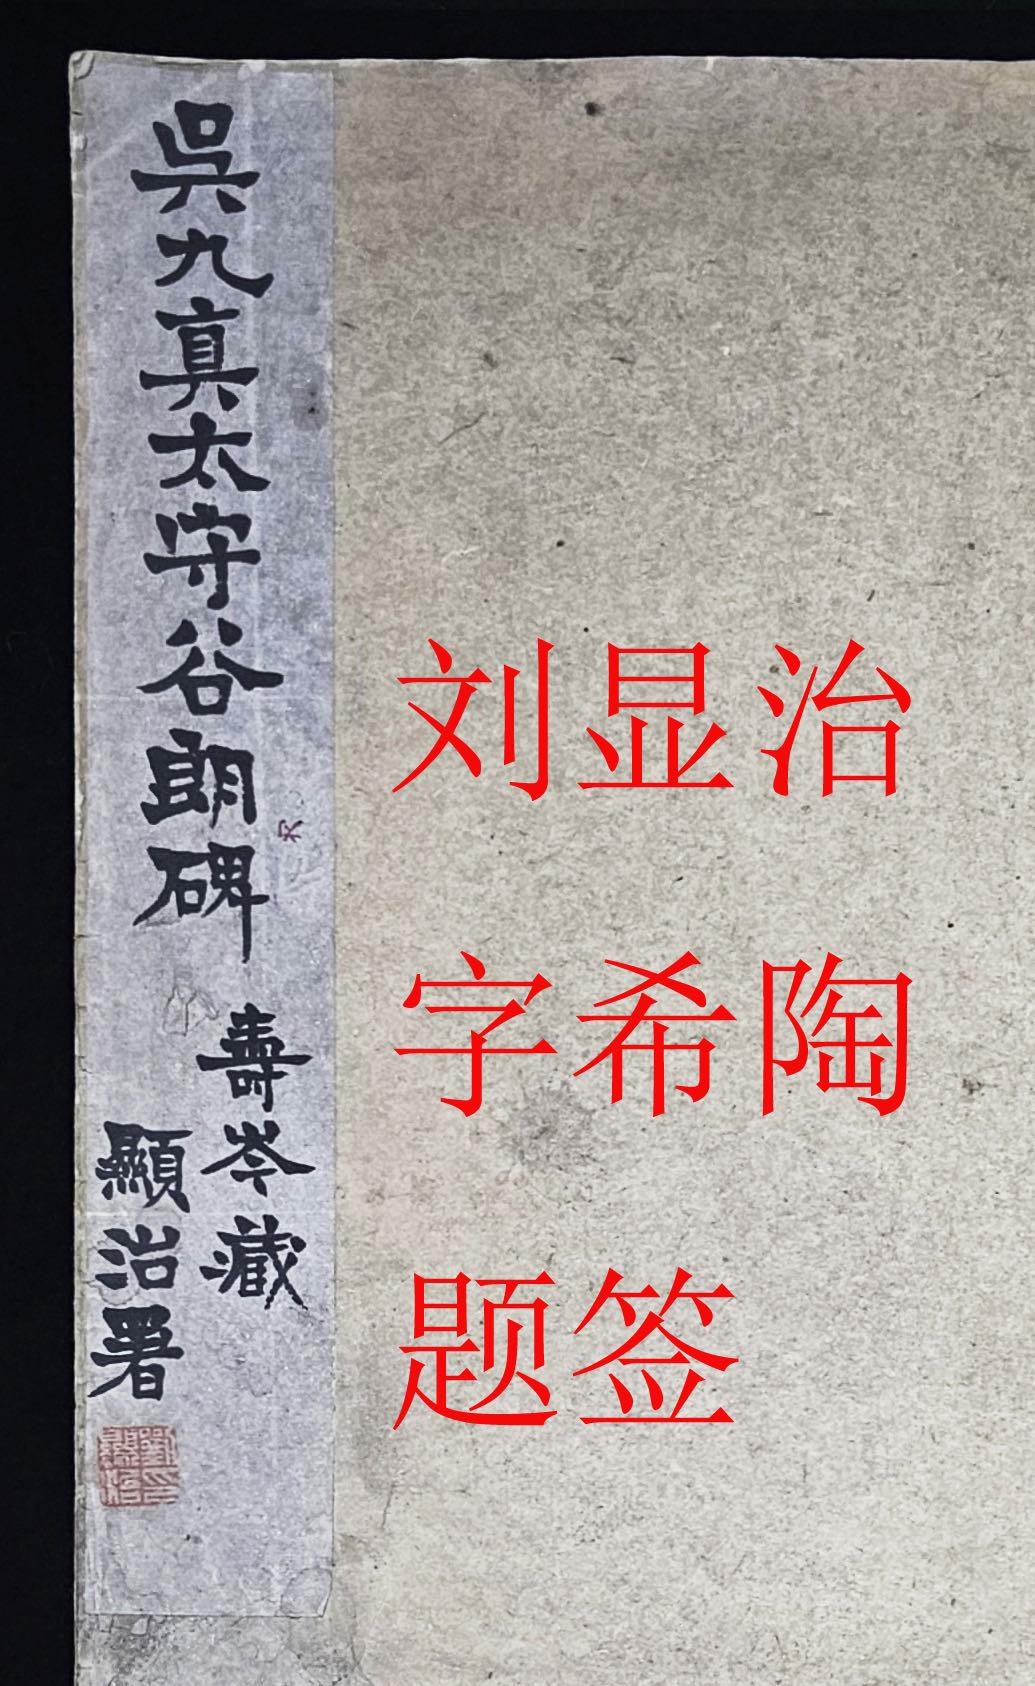 吳九真太守谷朗碑
壽岑藏
顯治署
劉顯治印
刘显治
字希陶
题签